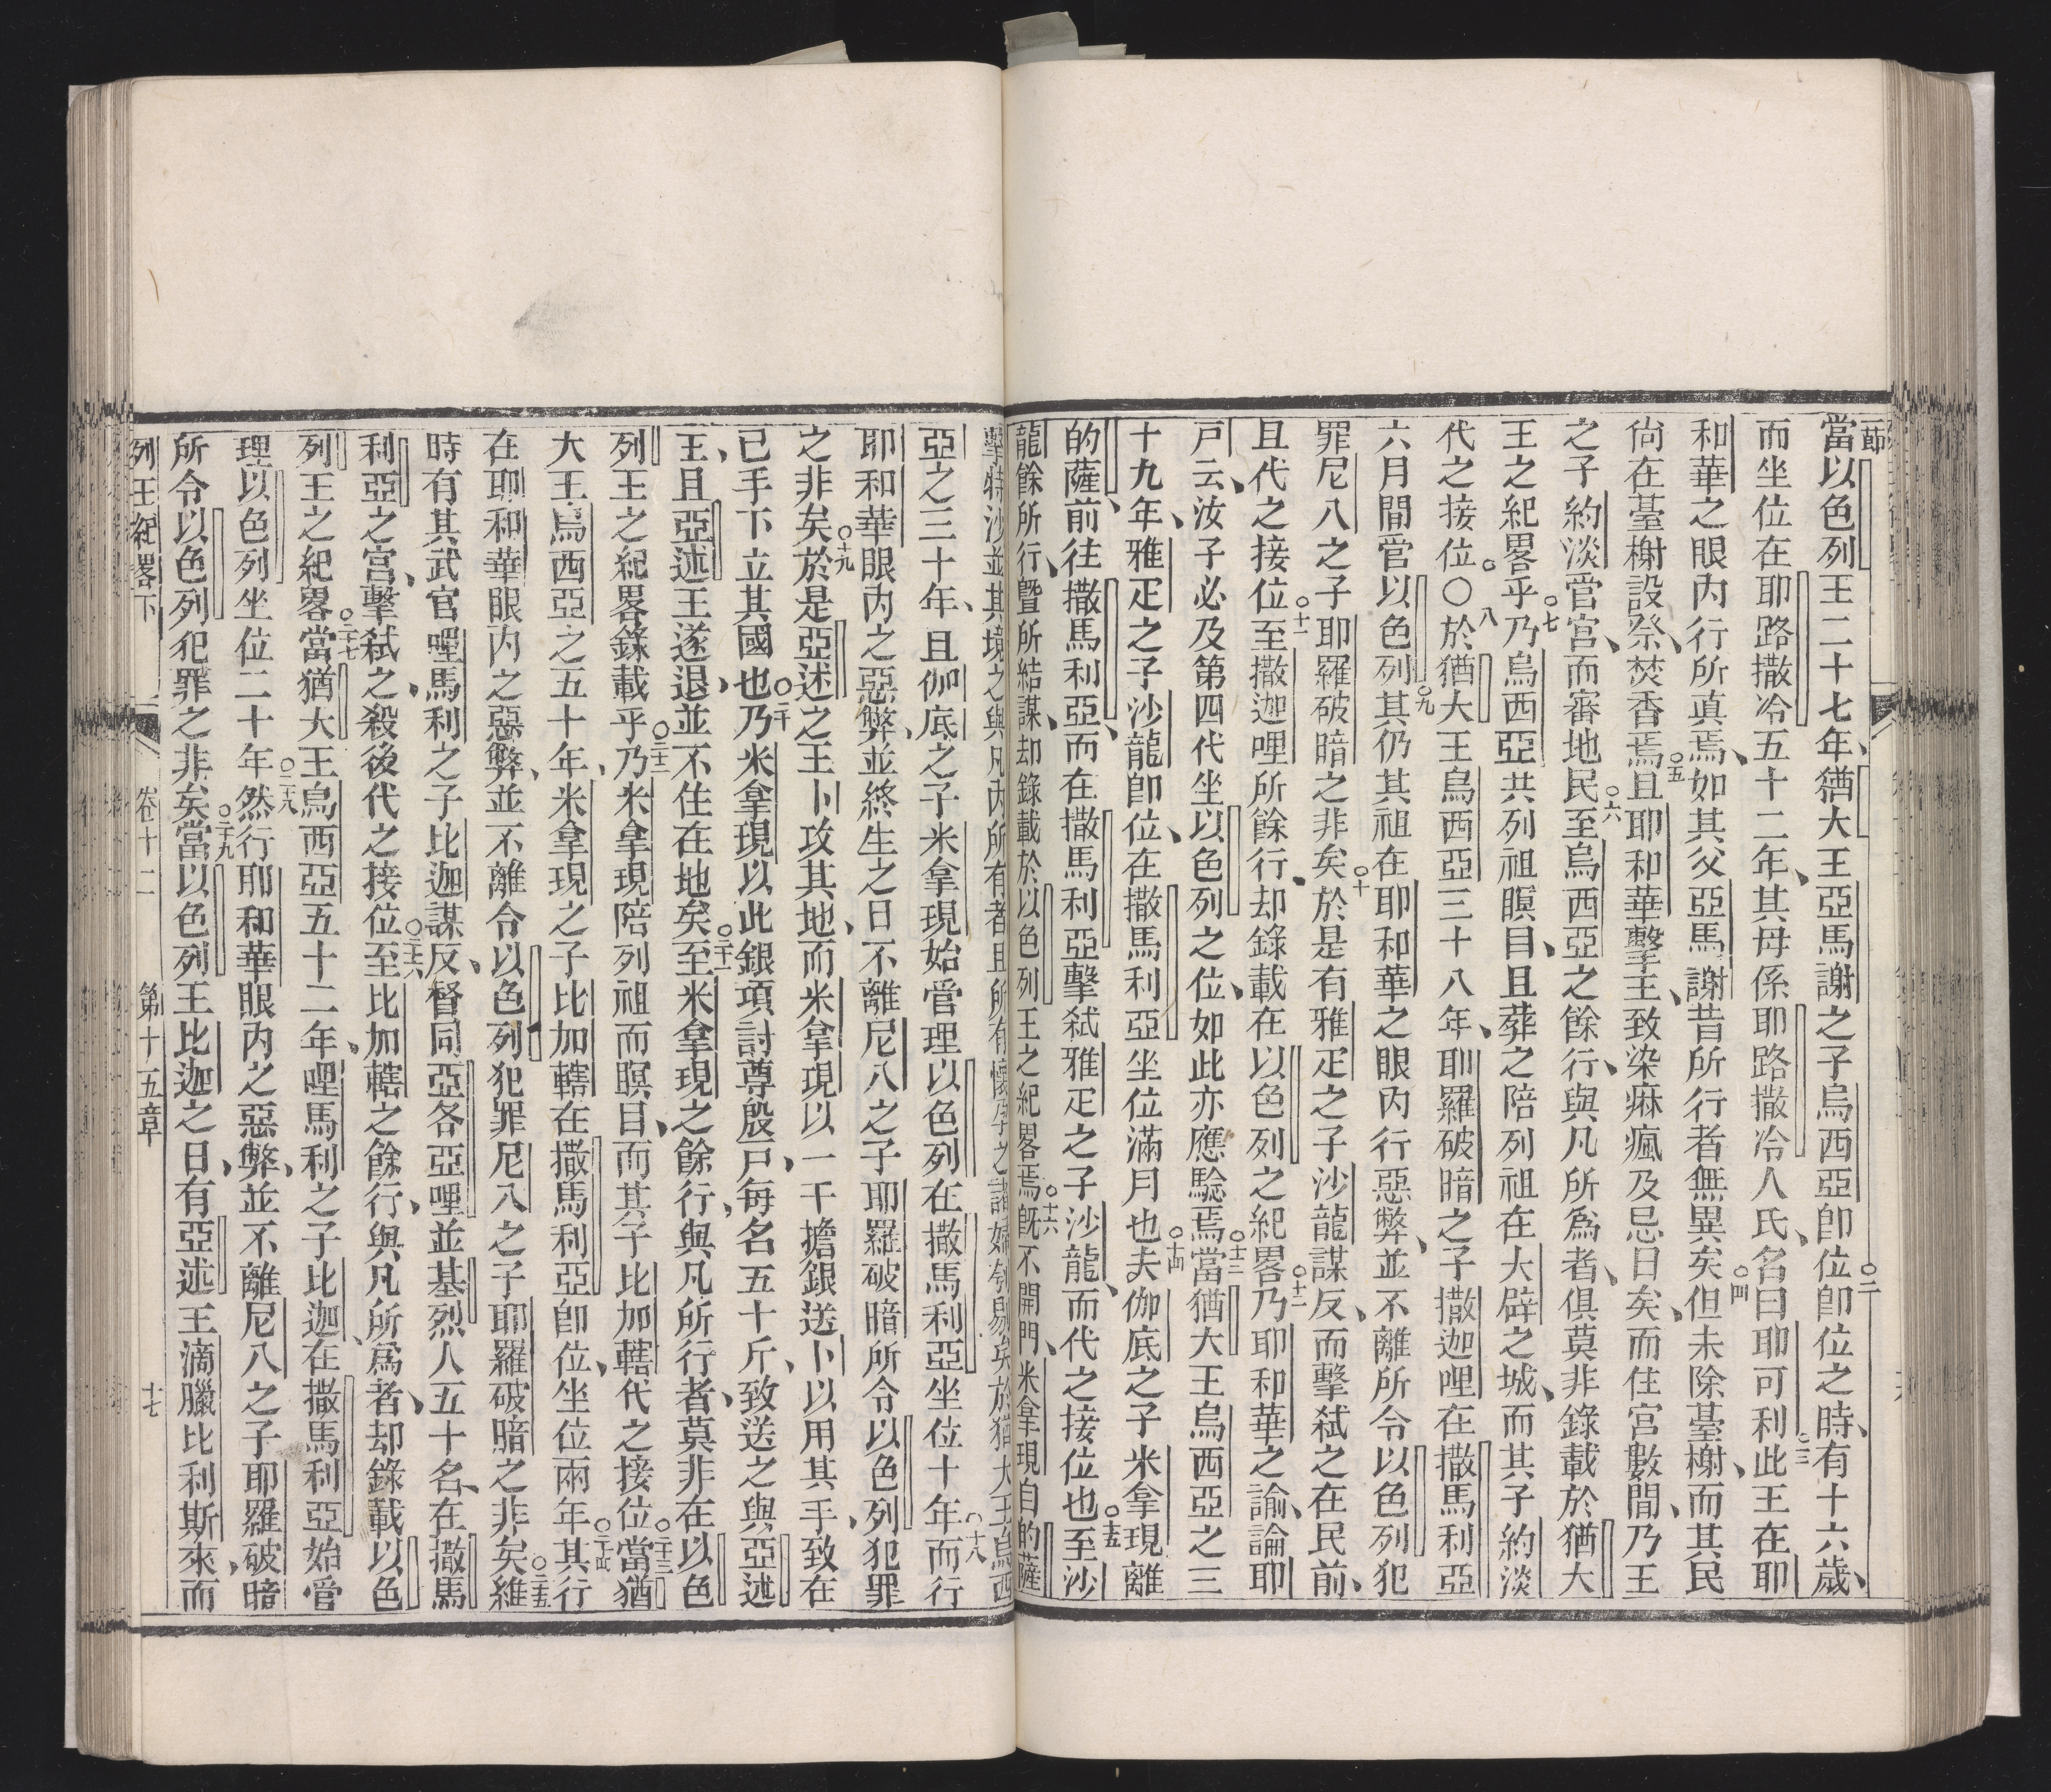 一節
當以色列王二十七年猶大王亞馬謝之子烏西亞卽位○二卽位之時有十六歲
而坐位在耶路撒冷五十二年其母係耶路撒冷人氏名曰耶可利○三此王在耶
和華之眼內行所真焉如其父亞馬謝昔所行者無異矣○四但未除臺榭而其民
尙在臺榭設祭焚香焉○五且耶和華擊王致染痳瘋及忌日矣而住宮數間乃王
之子約淡管宮而審地民○六至烏西亞之餘行與凡所爲者俱莫非錄載於猶大
王之紀畧乎○七乃烏西亞共列祖瞑目且葬之陪列祖在大辟之城而其子約淡
代之接位。○八於猶大王烏西亞三十八年耶羅破暗之子撒迦哩在撒馬利亞
六月間管以色列○九其仍其祖在耶和華之眼內行惡弊並不離所令以色列犯
罪尼八之子耶羅破暗之非矣○十於是有雅疋之子沙龍謀反而擊弒之在民前
且代之接位○十一至撒迦哩所餘行却錄載在以色列之紀畧○十二乃耶和華之諭論耶
戸云汝子必及第四代坐以色列之位如此亦應騐焉○十三當猶大王烏西亞之三
十九年雅疋之子沙龍卽位在撒馬利亞坐位滿月也○十四夫伽底之子米拿現離
的薩前往撒馬利亞而在撒馬利亞擊弒雅疋之子沙龍而代之接位也○十五至沙
龍餘所行曁所結謀却錄載於以色列王之紀畧焉○十六旣不開門米拿現自的薩
擊特沙並其境之與凡內所有者且所有懷孕之諸婦刳剔矣於猶大王烏西
亞之三十年且伽底之子米拿現始管理以色列在撒馬利亞坐位十年○十八而行
耶和華眼內之惡弊並終生之日不離尼八之子耶羅破暗所令以色列犯罪
之非矣○十九於是亞述之王卜攻其地而米拿現以一千擔銀送卜以用其手致在
已手下立其國也○二十乃米拿現以此銀項討尊殷戸每名五十斤致送之與亞述
王且亞述王遂退並不住在地矣○二十一至米拿現之餘行與凡所行者莫非在以色
列王之紀畧錄載乎○二十二乃米拿現陪列祖而瞑目而其子比加轄代之接位○二十三當猶
大王烏西亞之五十年米拿現之子比加轄在撒馬利亞卽位坐位兩年○二十四其行
在耶和華眼內之惡弊並不離令以色列犯罪尼八之子耶羅破暗之非矣○二十五維
時有其武官哩馬利之子比迦謀反督同亞各亞哩並基烈人五十名在撒馬
利亞之宮擊弒之殺後代之接位○二十六至比加轄之餘行與凡所爲者却錄載以色
列王之紀畧○二十七當猶大王烏西亞五十二年哩馬利之子比迦在撒馬利亞始管
理以色列坐位二十年○二十八然行耶和華眼內之惡弊並不離尼八之子耶羅破暗
所令以色列犯罪之非矣○二十九當以色列王比迦之日有亞述王滴臘比利斯來而
列王紀畧下 卷十二 第十五章 十七